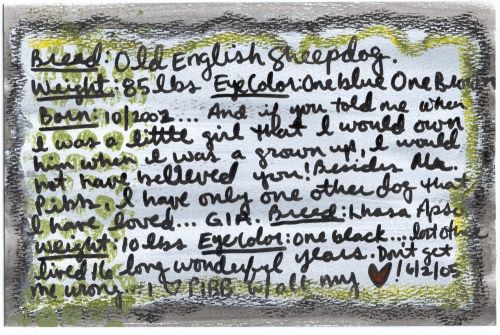 Breed: Old English Sheepdog.
Weight: 85 lbs Eye Color: One blue One Brown
Born: 10/2002.... And if you told me when
I was a little girl that I would own
him when I was a grown up, I would
not have believed you! Besides Mr.
Pibb, I have only one other dog that
I have loved... GIR. Breed: Lhasa Apso
Weight: 10 lbs Eye color: one black....lost other
lived 16 long wonderful years. Don't get
me wrong - I ♥ PIBB w/all my ♥ 1/6/2/05